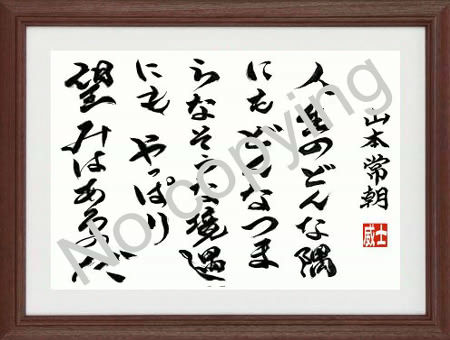 山本常朝
威士
人生のどんな隅
にもどんなつま
らなそうな境遇
にも やっぱり
望みはあるのだ
No copying